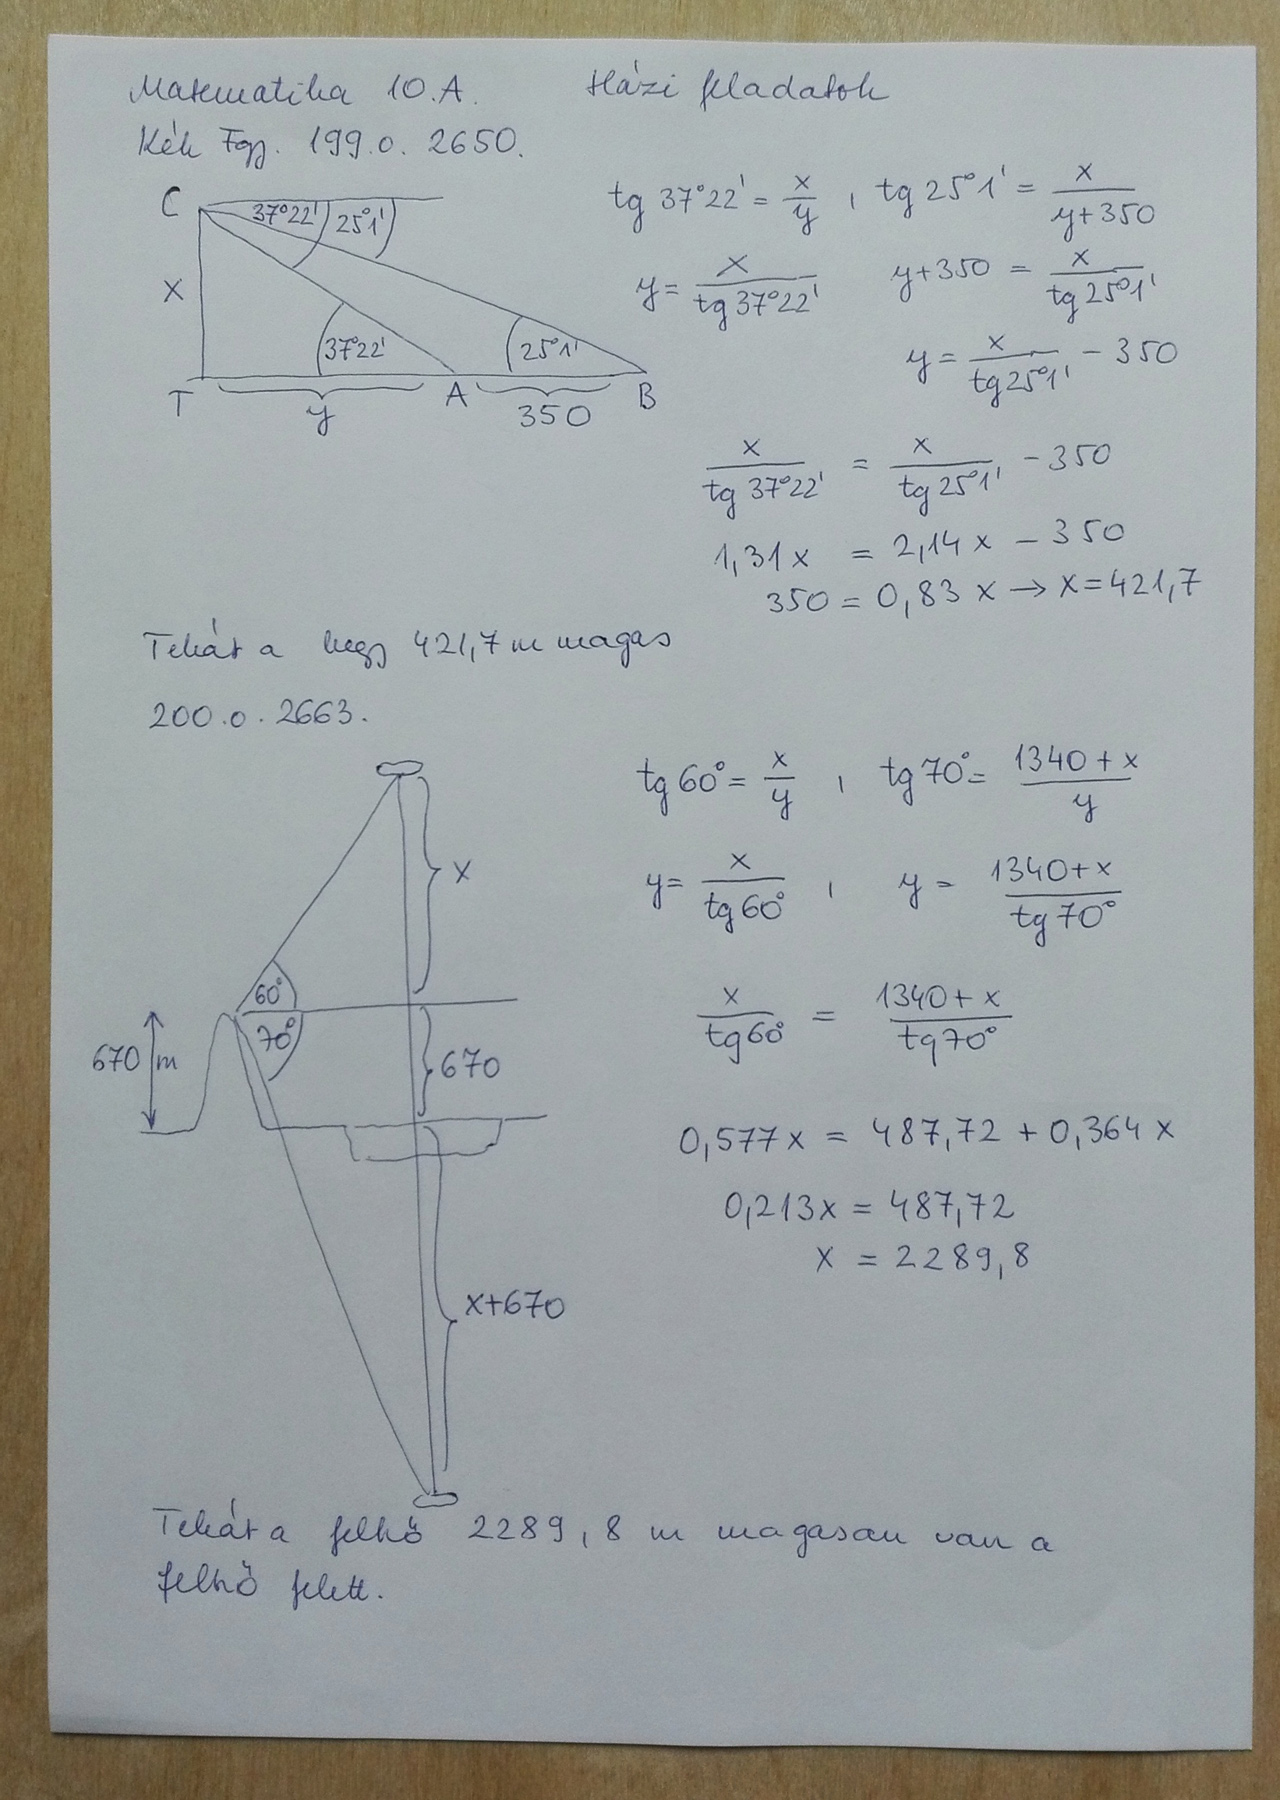 Matematika 10.A. Házi feladatok
Kék Fgy. 199.o. 2650.
C 37°22' 25°1'
x
37°22' 25°1'
T y A 350 B
tg 37°22' = x/y , tg 25°1' = x/(y+350)
y = x/tg 37°22' y+350 = x/tg 25°1'
y = x/tg 25°1' - 350
x/tg 37°22' = x/tg 25°1' - 350
1,31x = 2,14x - 350
350 = 0,83x → x = 421,7
Tehát a hegy 421,7 m magas
200.o. 2663.
x
60°
70°
670 m
670
x+670
tg 60° = x/y , tg 70° = (1340+x)/y
y = x/tg 60° , y = (1340+x)/tg 70°
x/tg 60° = (1340+x)/tg 70°
0,577x = 487,72 + 0,364x
0,213x = 487,72
x = 2289,8
Tehát a felhő 2289,8 m magasan van a
felhő felett.